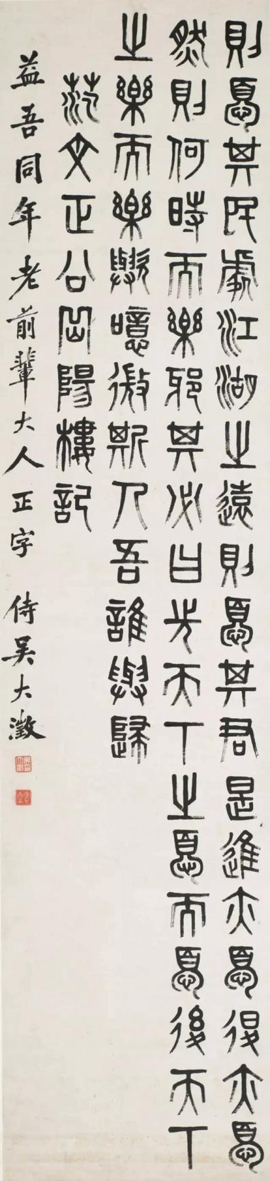 則憂其民處江湖之遠則憂其君是進亦憂退亦憂
然則何時而樂邪其必曰先天下之憂而憂後天下
之樂而樂歟噫微斯人吾誰與歸
范文正公岳陽樓記
益吾同年老前輩大人正字 侍吳大澂